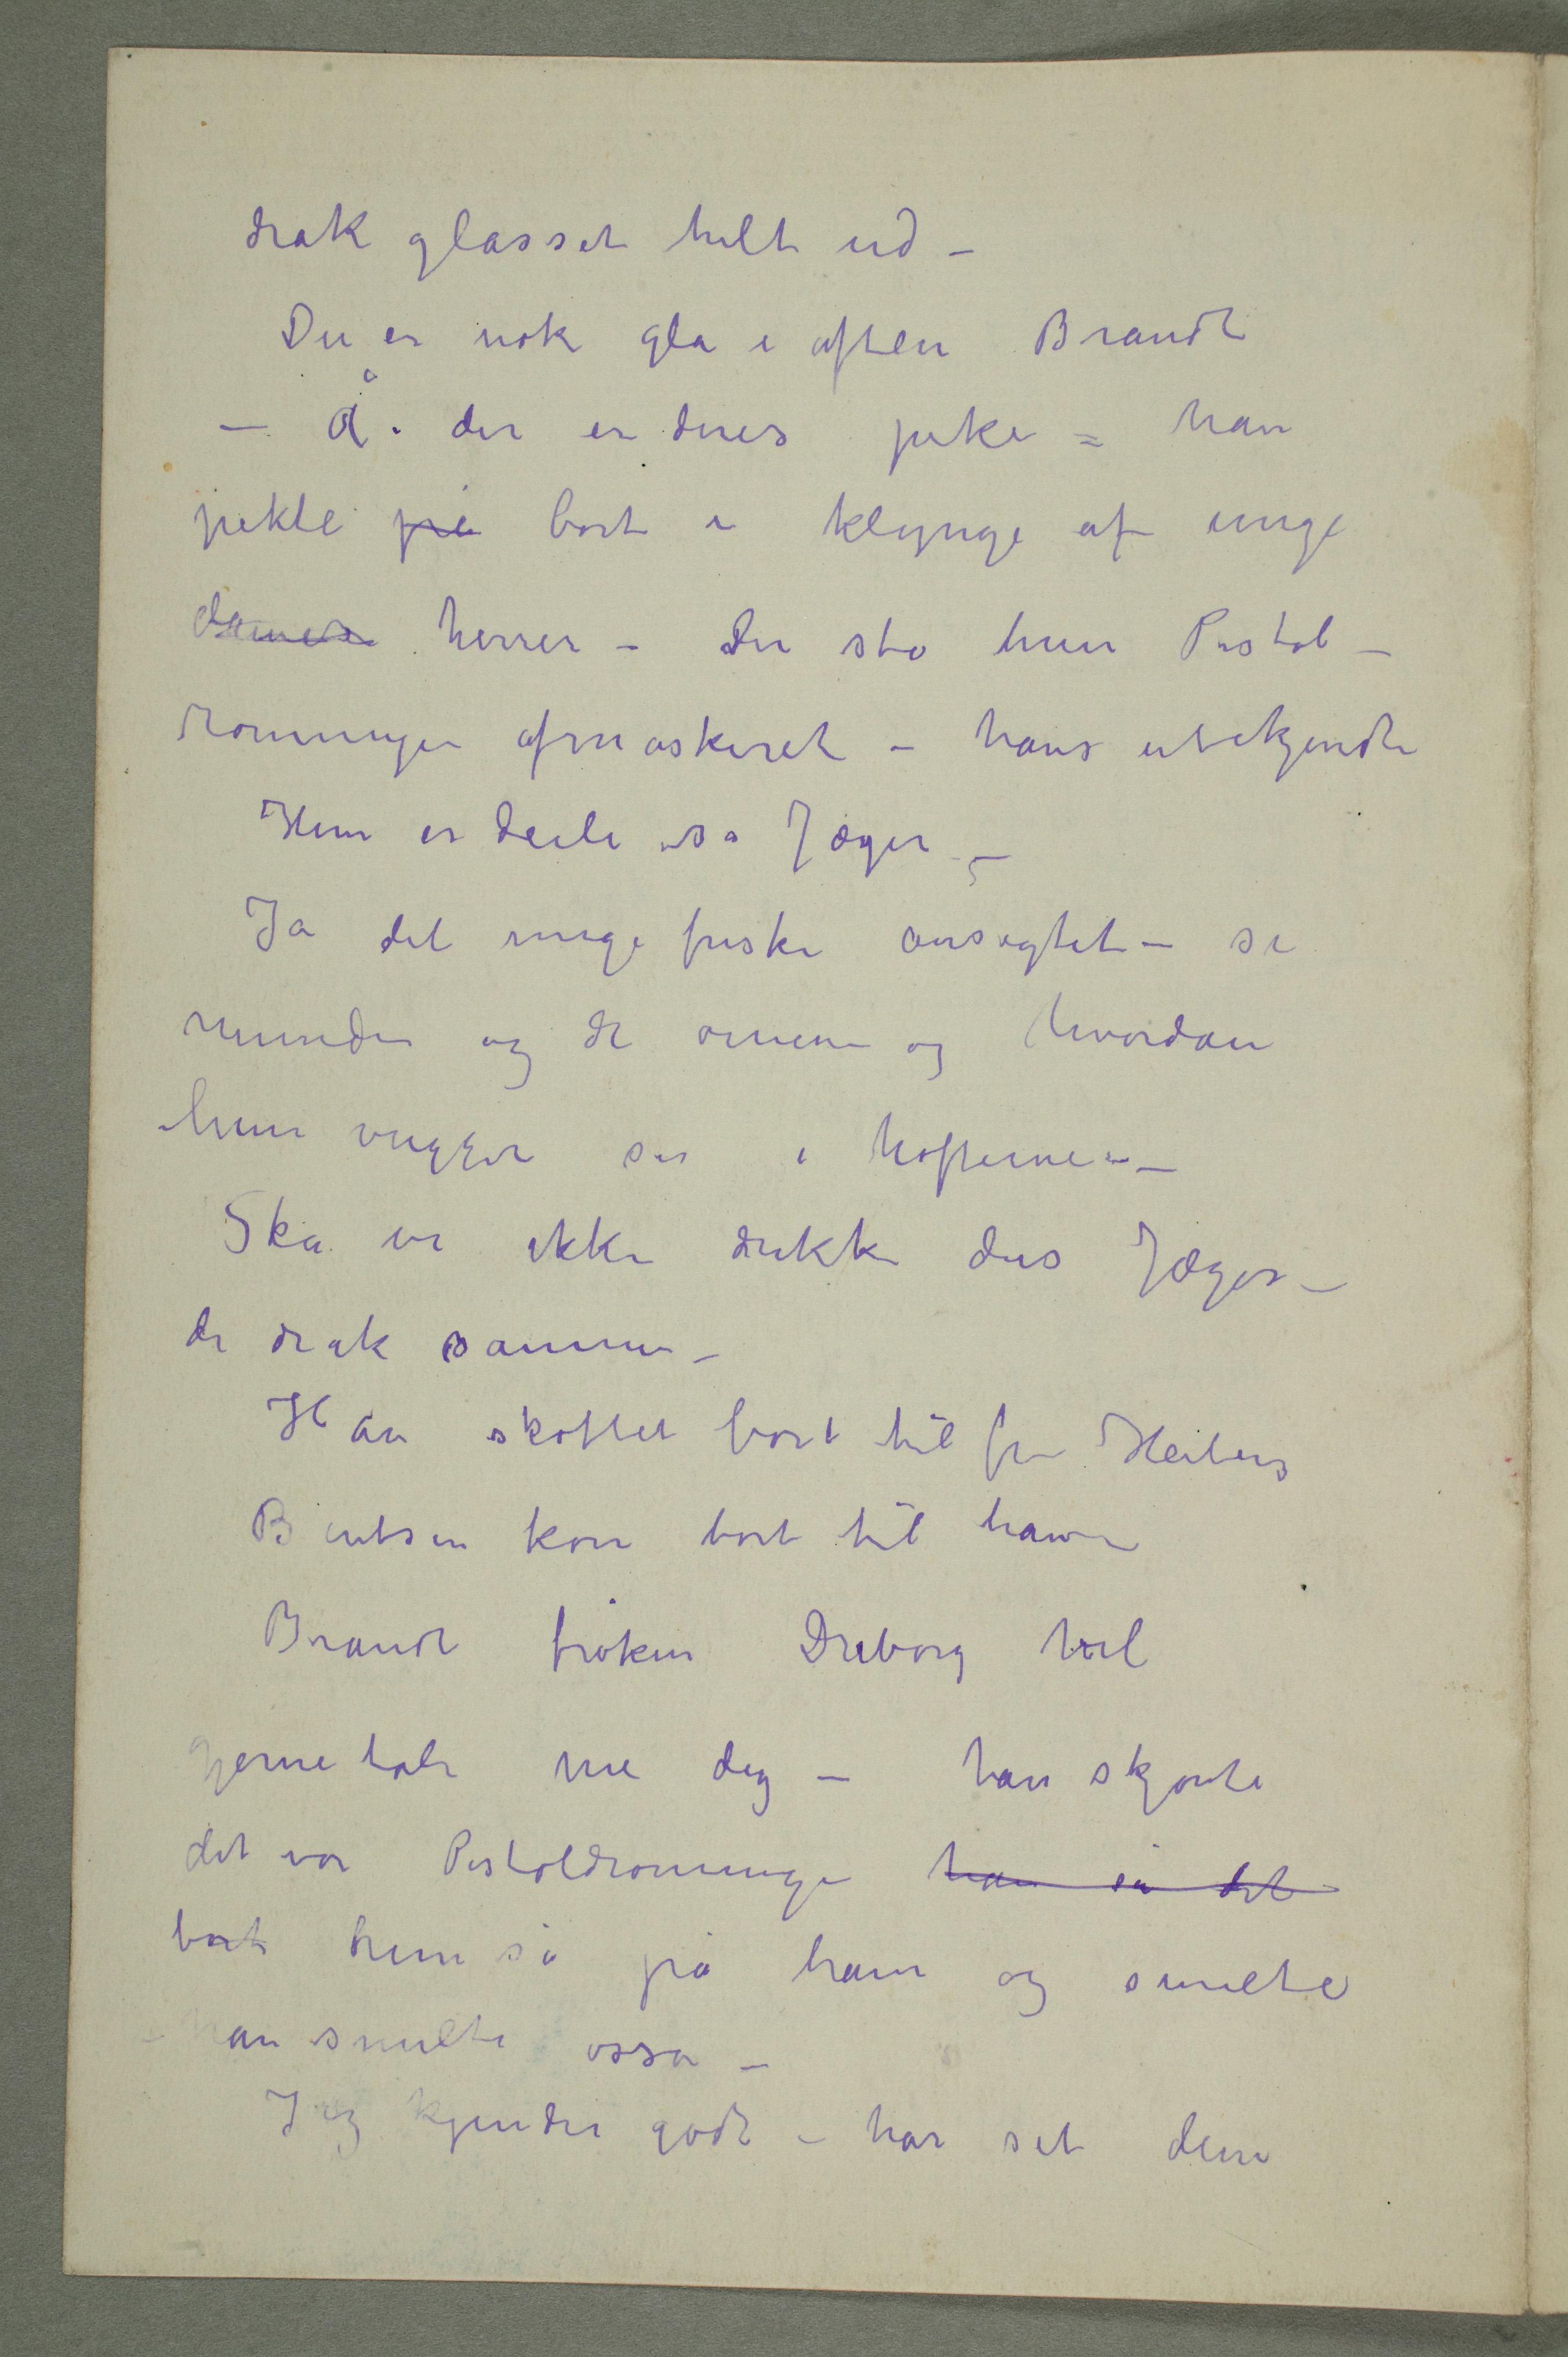 drak glasset helt ud –
Du er nok gla i aften Brandt
– Å. der er deres pike = han
pekte på bort i klynge af unge
damer herrer – der sto hun Pistol–
dronningen afmaskeret – hans ubekjendte
Hun er deili sa Jæger –
Ja det unge friske ansigtet – se
munden og de øinene og hvordan
hun vugger sei i hofterne –
Ska vi ikke drikke dus Jæger –
de drak sammen –
Han skottet bort til fru Heiberg
Bentsen kom bort til ham
Brandt frøken Dreborg vil
gjerne tale me dig – han skjønte
det var Pistoldronningen han så det
bort hun så på ham og smilte
– han smilte ossa –
Jeg kjender godt – har set dem